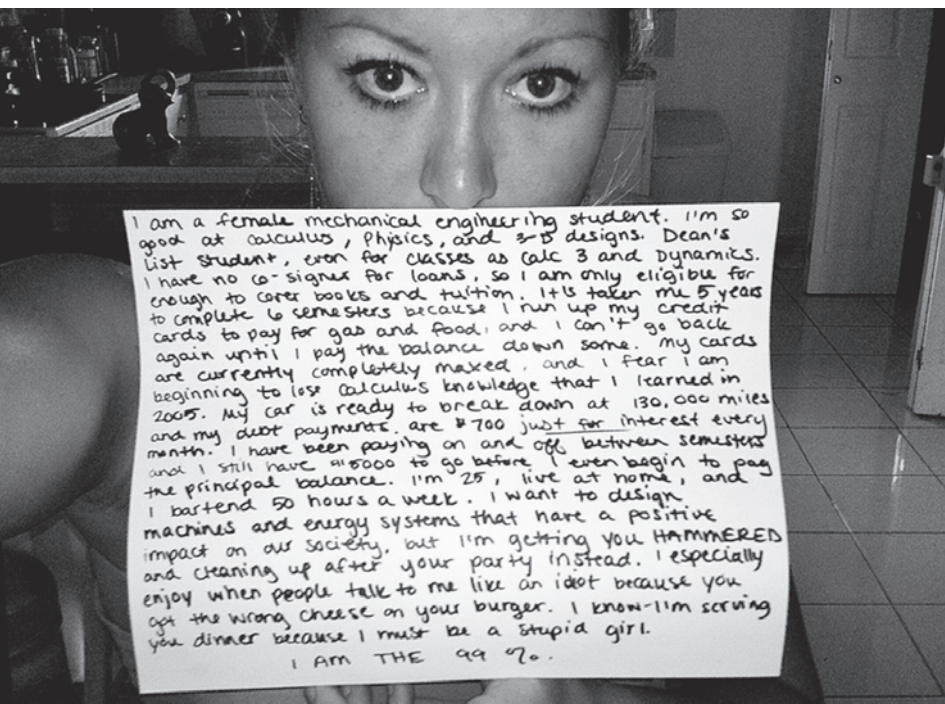 I am a female mechanical engineering student. I'm so
good at calculus, Physics, and 3-D designs. Dean's
List student, even for classes as Calc 3 and Dynamics.
I have no co-signer for loans, so I am only eligible for
enough to cover books and tuition. It's taken me 5 years
to complete 6 semesters because I run up my credit
cards to pay for gas and food, and I can't go back
again until I pay the balance down some. My cards
are currently completely maxed, and I fear I am
beginning to lose calculus knowledge that I learned in
2005. My car is ready to break down at 130,000 miles
and my debt payments are $700 just for interest every
month. I have been paying on and off between semesters
and I still have $15000 to go before I even begin to pay
the principal balance. I'm 25, live at home, and
I bartend 50 hours a week. I want to design
machines and energy systems that have a positive
impact on our society, but I'm getting you HAMMERED
and cleaning up after your party instead. I especially
enjoy when people talk to me like an idiot because you
got the wrong cheese on your burger. I know-I'm serving
you dinner because I must be a stupid girl.
I AM THE 99 %.